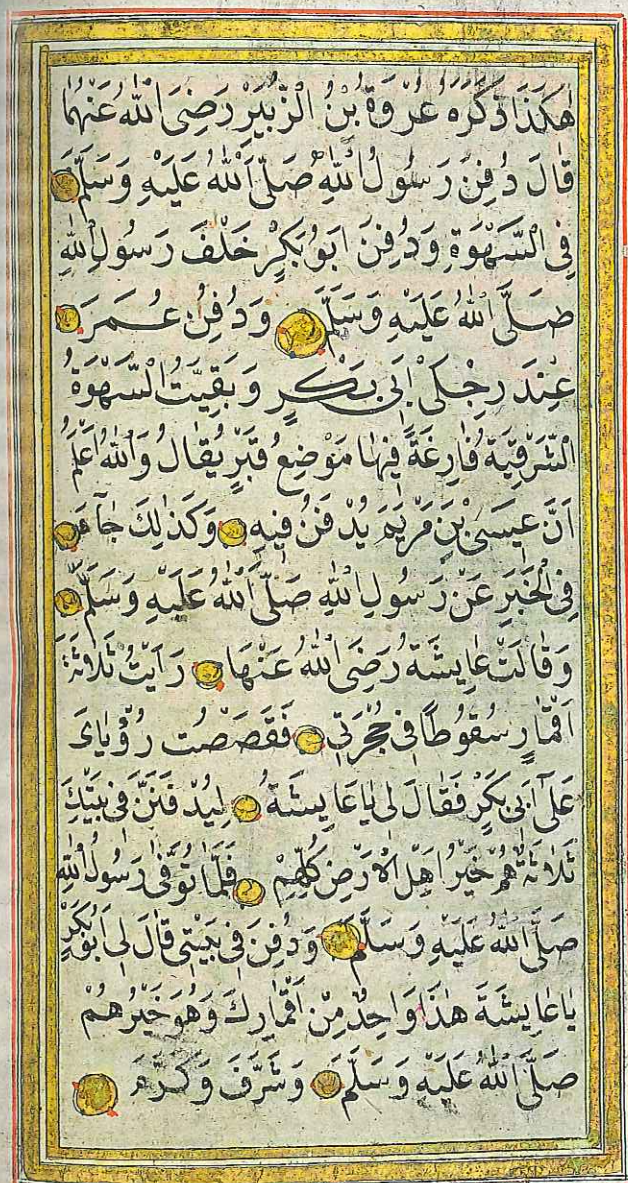 هٰكَذَا ذَكَرَهُ عُرْوَةُ بْنُ الزُّبَيْرِ رَضِيَ اللّٰهُ عَنْهُمَا
قَالَ دُفِنَ رَسُولُ اللّٰهِ صَلَّى اللّٰهُ عَلَيْهِ وَسَلَّمَ
فِي السَّهْوَةِ وَدُفِنَ اَبُو بَكْرٍ خَلْفَ رَسُولِ اللّٰهِ
صَلَّى اللّٰهُ عَلَيْهِ وَسَلَّمَ وَدُفِنَ عُمَرَ
عِنْدَ رِجْلَىْ اَبِى بَكْرٍ وَبَقِيَتْ السَّهْوَةُ
الشَّرْقِيَّةُ فَارِغَةً فِيهَا مَوْضِعُ قَبْرٍ يُقَالُ وَاللّٰهُ اَعْلَمُ
اَنَّ عِيسَى بْنَ مَرْيَمَ يُدْفَنُ فِيهِ وَكَذٰلِكَ جَاۤءَ
فِي الْخَبَرِ عَنْ رَسُولِ اللّٰهِ صَلَّى اللّٰهُ عَلَيْهِ وَسَلَّمَ
وَقَالَتْ عَايِشَةُ رَضِيَ اللّٰهُ عَنْهَا رَاَيْتُ ثَلَاثَةَ
اَقْمَارٍ سُقُوطًا فِي حُجْرَتِي فَقَصَصْتُ رُؤْيَاىَ
عَلٰى اَبِي بَكْرٍ فَقَالَ لِي يَا عَايِشَةُ لَيُدْفَنَنَّ فِي بَيْتِكِ
ثَلَاثَةٌ هُمْ خَيْرُ اَهْلِ الْاَرْضِ كُلِّهِمْ فَلَمَّا تُوُفِّىَ رَسُولُ اللّٰهِ
صَلَّى اللّٰهُ عَلَيْهِ وَسَلَّمَ وَدُفِنَ فِي بَيْتِي قَالَ لِي اَبُو بَكْرٍ
يَا عَايِشَةُ هٰذَا وَاحِدٌ مِنْ اَقْمَارِكِ وَهُوَ خَيْرُهُمْ
صَلَّى اللّٰهُ عَلَيْهِ وَسَلَّمَ وَشَرَّفَ وَكَرَّمَ